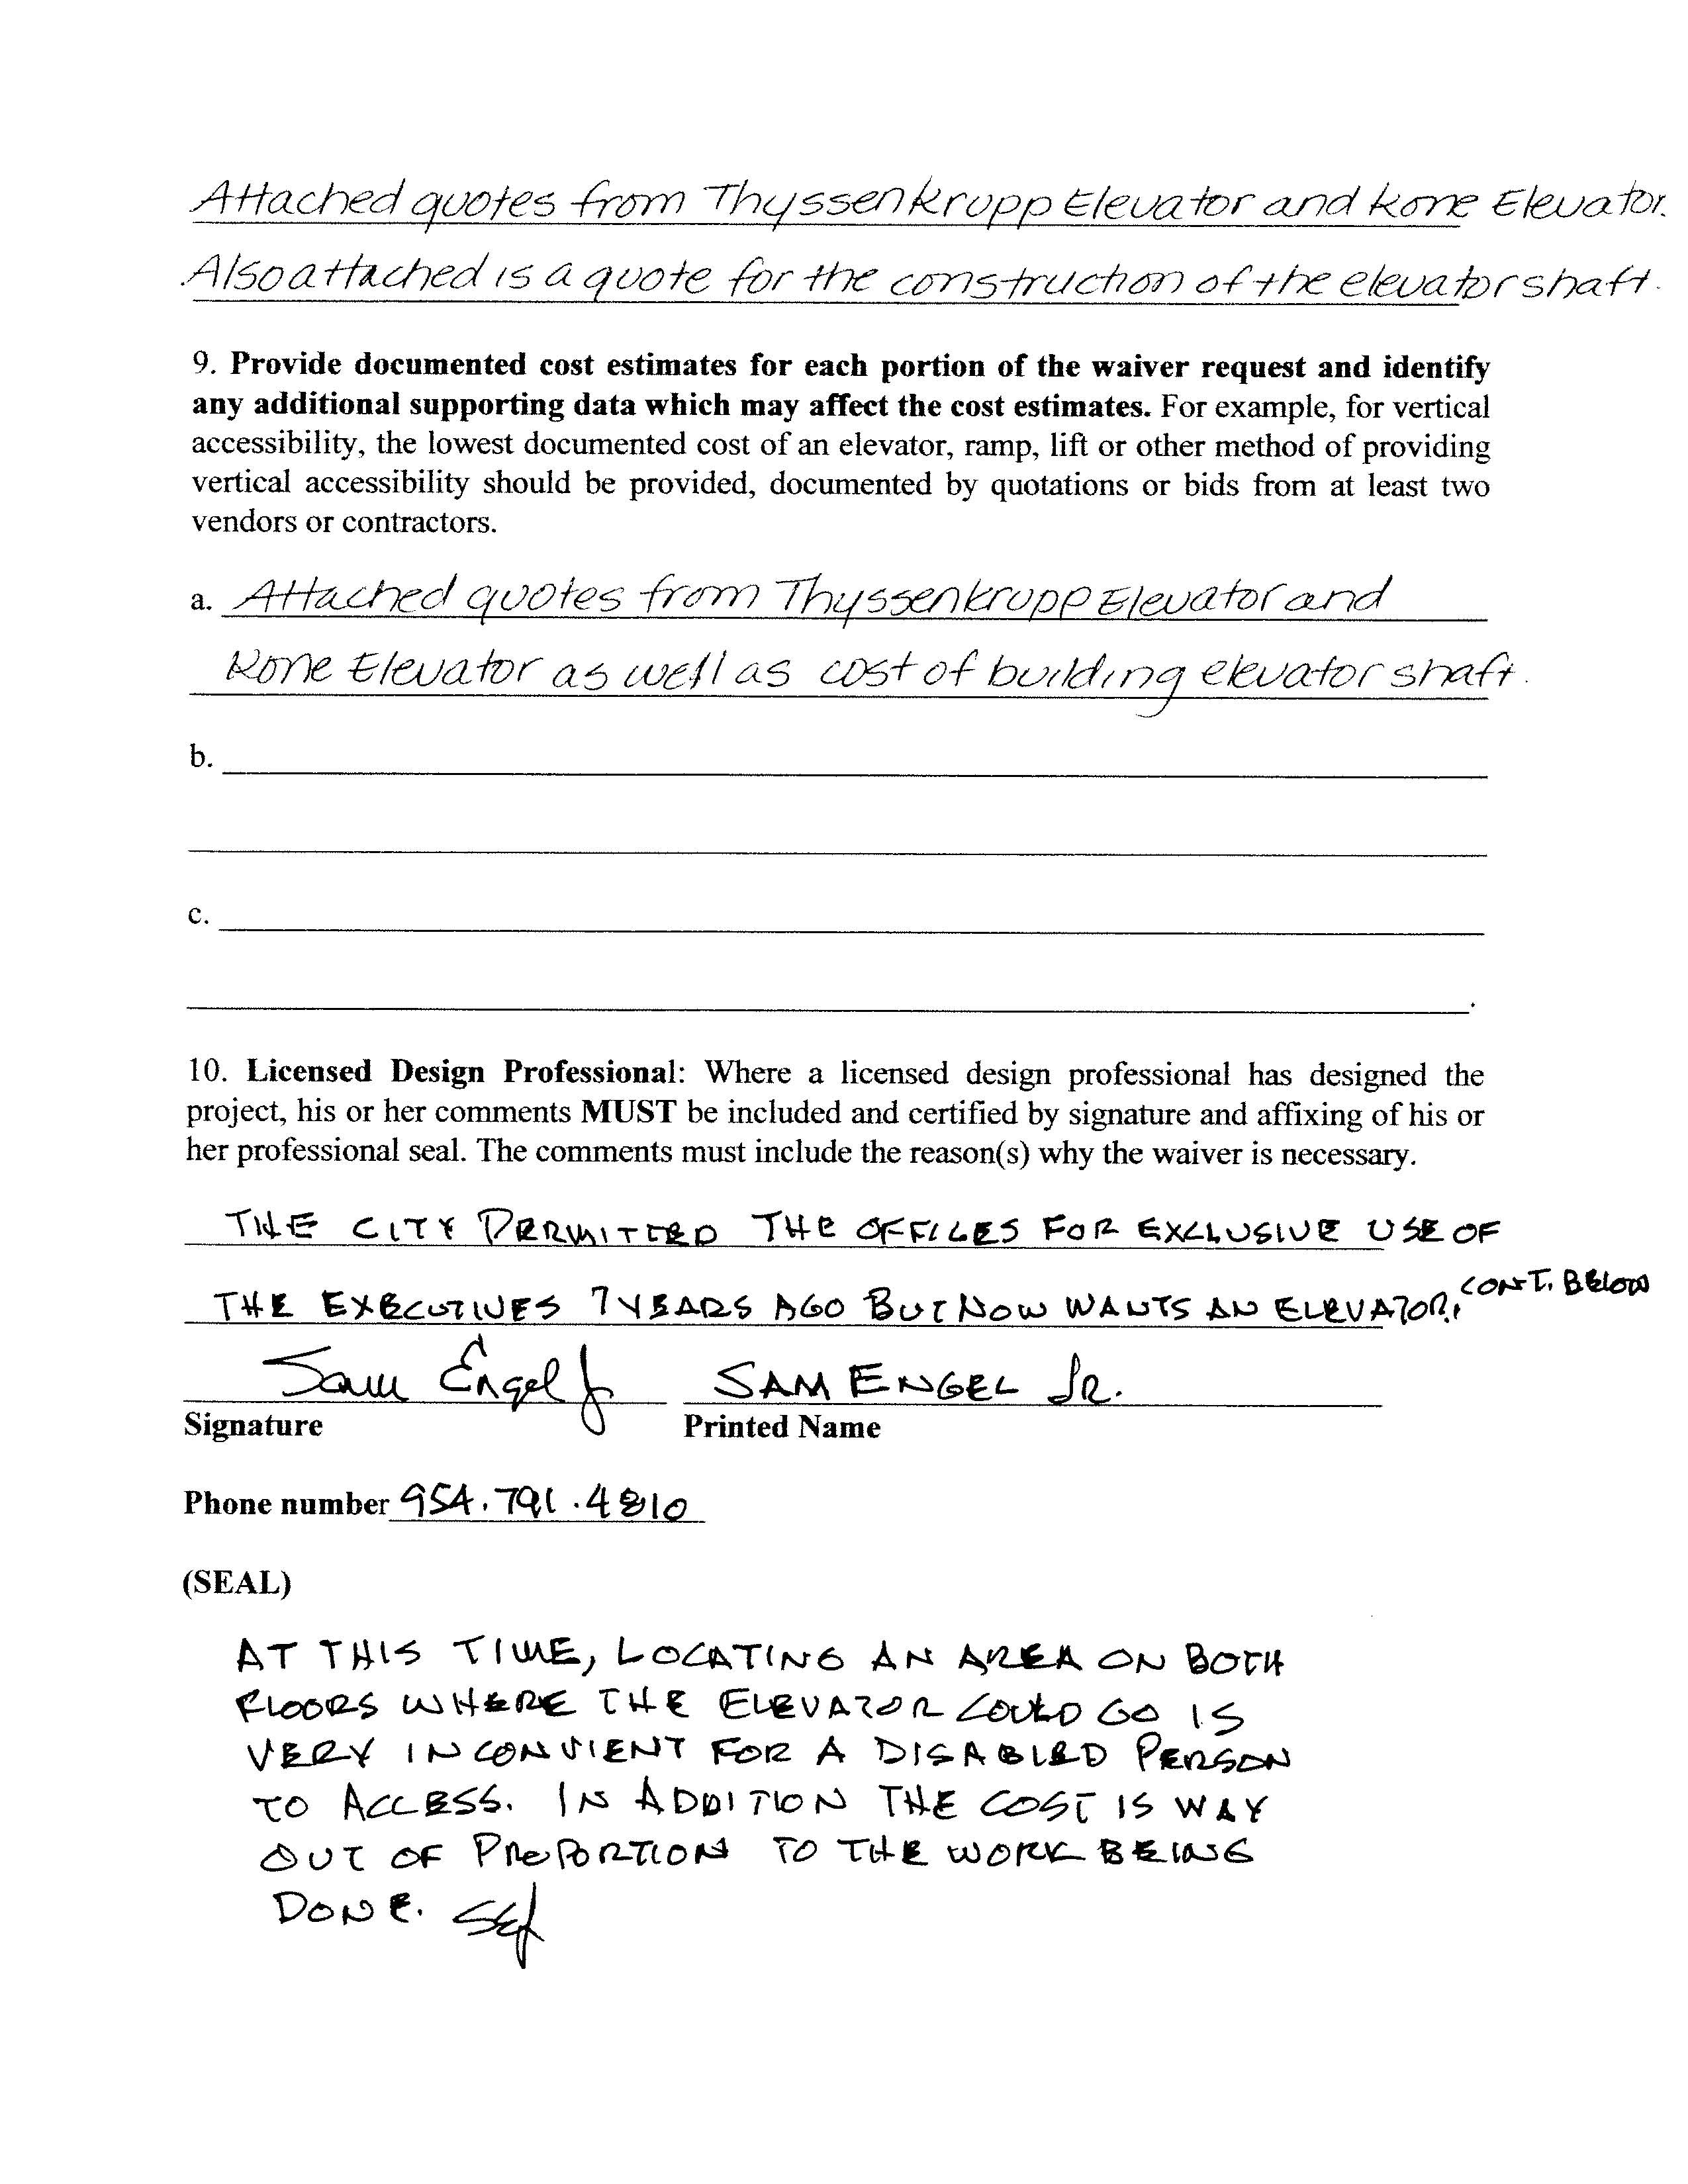 Attached quotes from Thyssenkrupp Elevator and Kone Elevator.
Also attached is a quote for the construction of the elevator shaft.
9. Provide documented cost estimates for each portion of the waiver request and identify
any additional supporting data which may affect the cost estimates. For example, for vertical
accessibility, the lowest documented cost of an elevator, ramp, lift or other method of providing
vertical accessibility should be provided, documented by quotations or bids from at least two
vendors or contractors.
a. Attached quotes from Thyssenkrupp Elevator and
Kone Elevator as well as cost of building elevator shaft.
b.
c.
10. Licensed Design Professional: Where a licensed design professional has designed the
project, his or her comments MUST be included and certified by signature and affixing of his or
her professional seal. The comments must include the reason(s) why the waiver is necessary.
THE CITY PERMITTED THE OFFICES FOR EXCLUSIVE USE OF
THE EXECUTIVES 7 YEARS AGO BUT NOW WANTS AN ELEVATOR, CONT. BELOW
Sam Engel Jr SAM ENGEL JR.
Signature Printed Name
Phone number 954.791.4810
(SEAL)
AT THIS TIME, LOCATING AN AREA ON BOTH
FLOORS WHERE THE ELEVATOR COULD GO IS
VERY INCONVIENT FOR A DISABLED PERSON
TO ACCESS. IN ADDITION THE COST IS WAY
OUT OF PROPORTION TO THE WORK BEING
DONE. SEJ